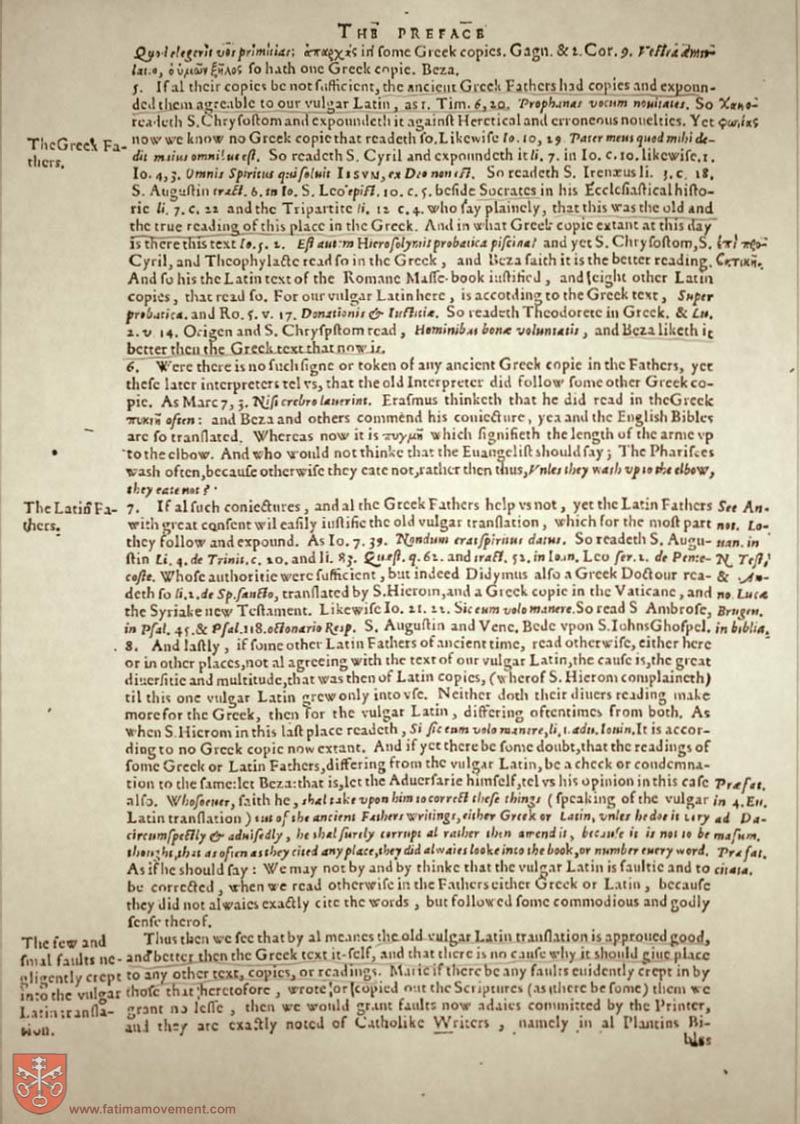 THE PREFACE
Quòd elegerit vos primitias: ἀπαρχὰς in some Greek copies. Gagn. & 2. Cor. 9. Vestra
so hath one Greek copie. Beza.
5. If al their copies be not sufficient, the ancient Greek Fathers had copies and expoun-
ded them agreable to our vulgar Latin, as 1. Tim. 6, 20. Prophanas vocum nouitates. So
readeth S. Chrysostom and expoundeth it against Heretical and erroneous nouelties. Yet
The Greek Fa-
thers.
now we know no Greek copie that readeth so. Likewise Io. 10, 29 Pater meus quod mihi de-
dit maius omnibus est. So readeth S. Cyril and expoundeth it li. 7. in Io. c. 10. likewise. 1.
Io. 4, 3. Omnis Spiritus qui soluit IESVM, ex Deo non est. So readeth S. Irenæus li. 3. c. 18.
S. Augustin tract. 6. in Io. S. Leo epist. 10. c. 5. beside Socrates in his Ecclesiastical histo-
rie li. 7. c. 22 and the Tripartite li. 12 c. 4. who say plainely, that this was the old and
the true reading of this place in the Greek. And in what Greek copie extant at this day
is there this text Io. 5. 2. Est autem Hierosolymis probatica piscina? and yet S. Chrysostom, S.
Cyril, and Theophylacte read so in the Greek, and Beza saith it is the better reading.
And so his the Latin text of the Romane Masse-book iustified, and eight other Latin
copies, that read so. For our vulgar Latin here, is according to the Greek text, Super
probatica. and Ro. 5. v. 17. Donationis & Iustitiæ. So readeth Theodorete in Greek. & Lu.
2. v 14. Origen and S. Chryspstom read, Hominibus bonæ voluntatis, and Beza liketh it
better then the Greek text that now is.
6. Were there is no such signe or token of any ancient Greek copie in the Fathers, yet
these later interpreters tel vs, that the old Interpreter did follow some other Greek co-
pie. As Marc 7, 3. Nisi crebro lauerint. Erasmus thinketh that he did read in the Greek
πυκνῇ often: and Beza and others commend his coniecture, yea and the English Bibles
are so translated. Whereas now it is πυγμῇ which signifieth the length of the arme vp
to the elbow. And who would not thinke that the Euangelist should say; The Pharisees
wash often, because otherwise they eate not, rather then thus, Vnles they wash vp to the elbow,
they eate not?
The Latin Fa-
thers.
7. If al such coniectures, and al the Greek Fathers help vs not, yet the Latin Fathers
with great consent wil easily iustifie the old vulgar translation, which for the most part
they follow and expound. As Io. 7. 39. Nondum erat spiritus datus. So readeth S. Augu-
stin Li. 4. de Trinit. c. 20. and li. 83. Quæst. q. 62. and tract. 52. in Ioan. Leo ser. 2. de Pente-
coste. Whose authoritie were sufficient, but indeed Didymus also a Greek Doctour rea-
deth so li. 2. de Sp. sancto, translated by S. Hierom, and a Greek copie in the Vaticane, and
the Syriake new Testament. Likewise Io. 21. 22. Sic eum volo manere. So read S Ambrose,
in Psal. 45. & Psal. 118. octonario Resp. S. Augustin and Vene. Bede vpon S. Iohns Ghospel.
See An-
not. Lo-
uan. in
N. Test.
& An-
no. Lucæ
Brugen.
in biblia.
8. And lastly, if some other Latin Fathers of ancient time, read otherwise, either here
or in other places, not al agreeing with the text of our vulgar Latin, the cause is, the great
diuersitie and multitude, that was then of Latin copies, (wherof S. Hierom complaineth)
til this one vulgar Latin grew only into vse. Neither doth their diuers reading make
more for the Greek, then for the vulgar Latin, differing oftentimes from both. As
when S. Hierom in this last place readeth, Si sic eum volo manere, li. 1. adu. Iouin. It is accor-
ding to no Greek copie now extant. And if yet there be some doubt, that the readings of
some Greek or Latin Fathers, differing from the vulgar Latin, be a check or condemna-
tion to the same: let Beza: that is, let the Aduersarie himself, tel vs his opinion in this case
also. Whosoeuer, saith he, shal take vpon him to correct these things (speaking of the vulgar
Latin translation) out of the ancient Fathers writings, either Greek or Latin, vnles he doe it very
circumspectly & aduisedly, he shal surely corrupt al rather then amend it, because it is not to be
thought, that as often as they cited any place, they did alwaies looke into the book, or number euery word.
Præfat.
in 4. Eu.
ad Da-
masum.
Præfat.
citata.
As if he should say: We may not by and by thinke that the vulgar Latin is faultie and to
be corrected, when we read otherwise in the Fathers either Greek or Latin, because
they did not alwaies exactly cite the words, but followed some commodious and godly
sense therof.
The few and
smal faults ne-
gligently crept
into the vulgar
Latin transla-
tion.
Thus then we see that by al meanes the old vulgar Latin translation is approued good,
and better then the Greek text it-self, and that there is no cause why it should giue place
to any other text, copies, or readings. Marie if there be any faults euidently crept in by
those that heretofore, wrote or copied out the Scriptures (as there be some) them we
grant no lesse, then we would grant faults now adaies committed by the Printer,
and they are exactly noted of Catholike Writers, namely in al Plantins Bi-
bles
www.fatimamovement.com